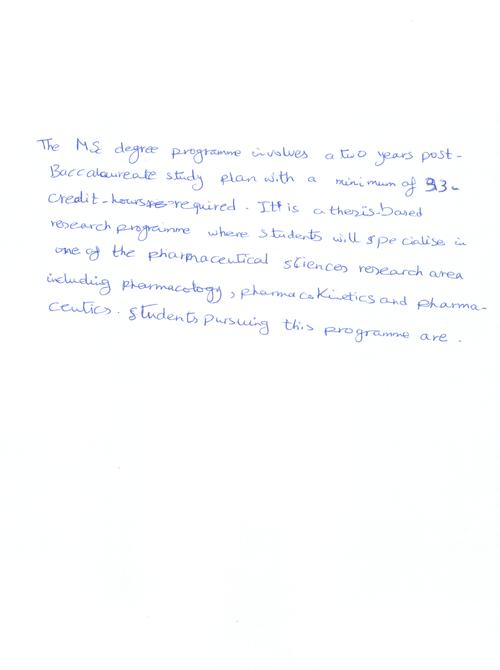 The MSc degree programme involves a two years post-
Baccalaureate study plan with a minimum of 33-
credit-hours required. It is a thesis-based
research programme where students will specialise in
one of the pharmaceutical sciences research area
including pharmacology, pharmacokinetics and pharma-
ceutics. Students pursuing this programme are.